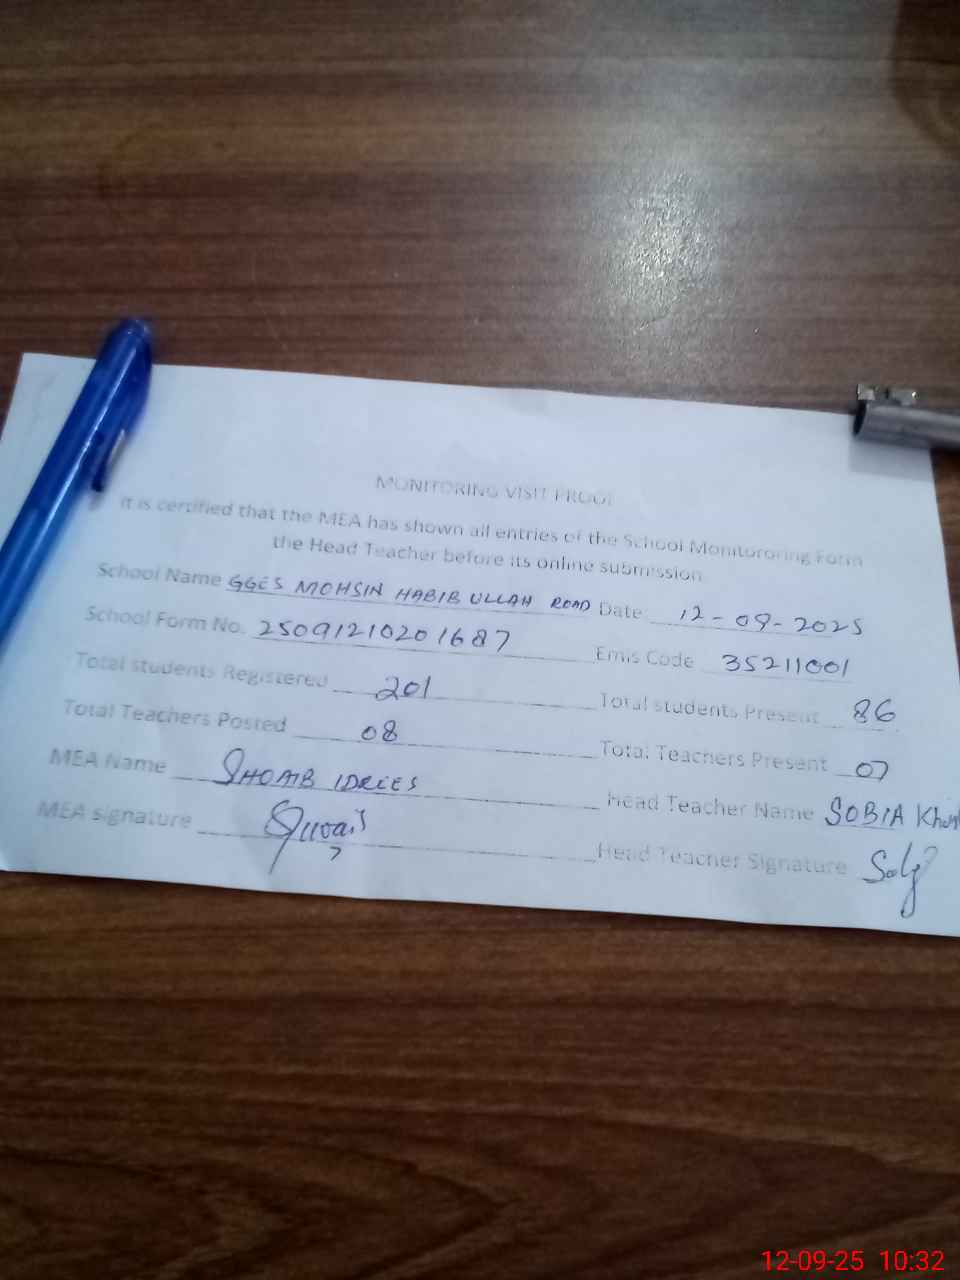 MONITORING VISIT PROOF
It is certified that the MEA has shown all entries of the School Monitororing Form
the Head Teacher before its online submission
School Name GGES MOHSIN HABIB ULLAH ROAD Date 12-09-2025
School Form No. 25091210201687 Emis Code 35211001
Total students Registered 201 Total students Present 86
Total Teachers Posted 08 Total Teachers Present 07
MEA Name SHOAIB IDREES Head Teacher Name SOBIA
MEA signature Head Teacher Signature
12-09-25 10:32